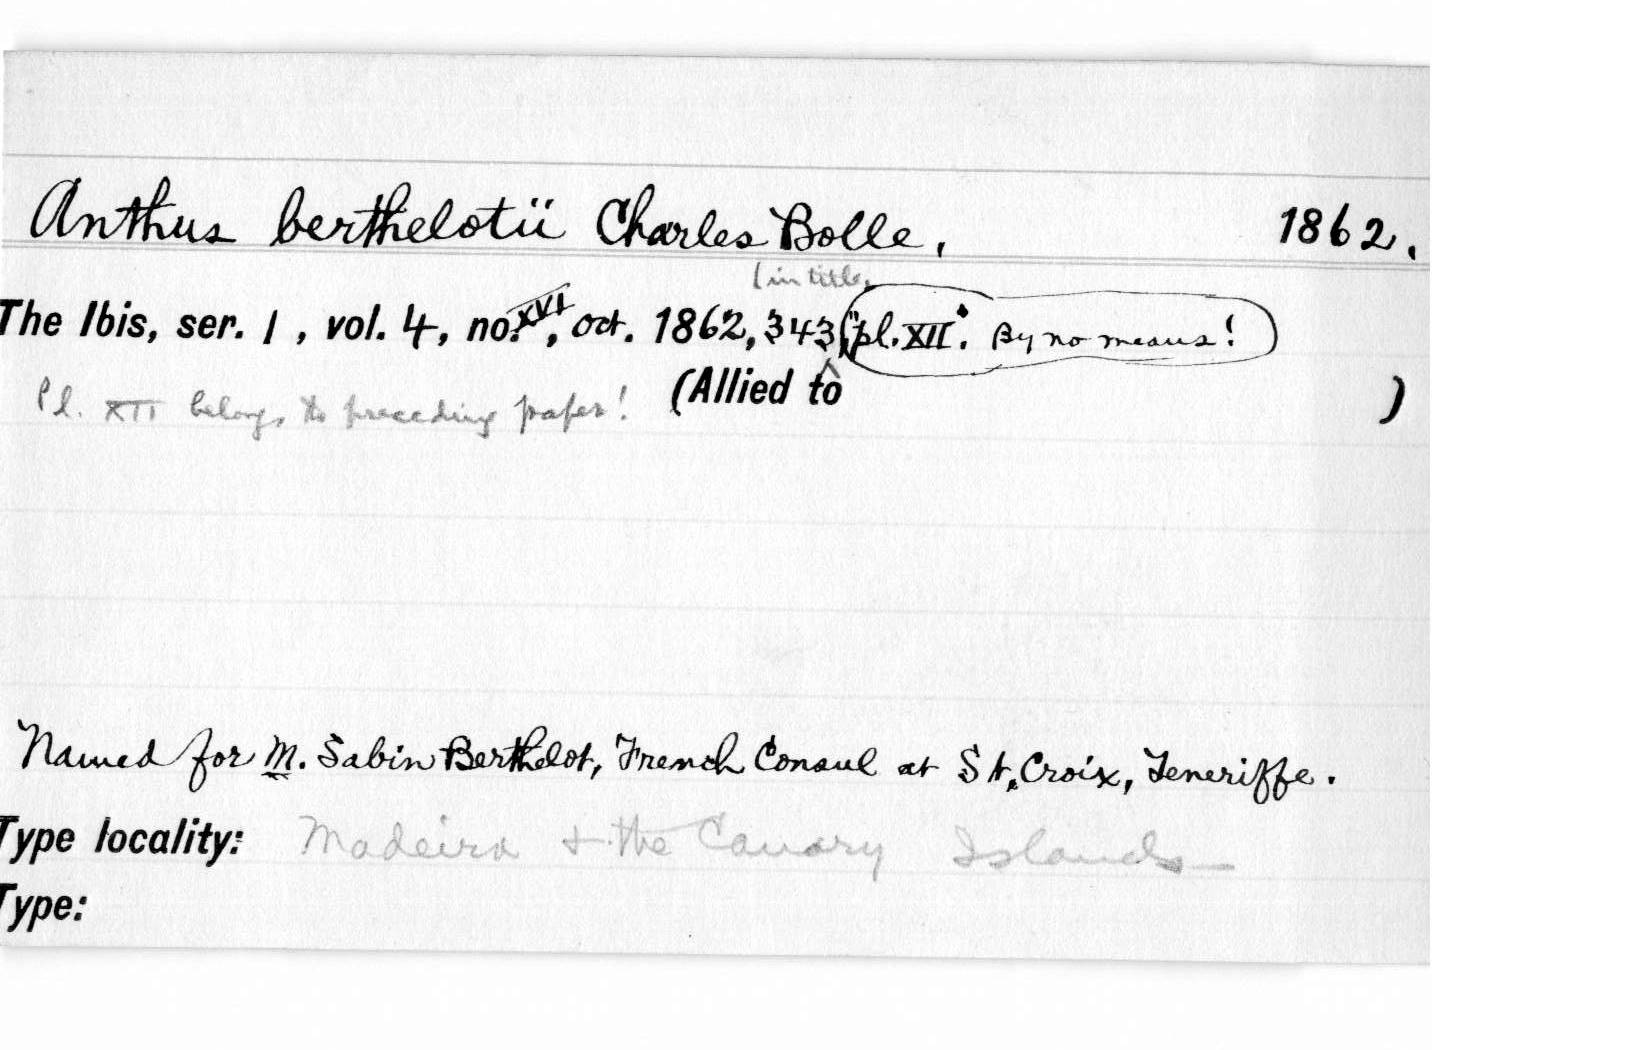 Anthus berthelotii Charles Bolle, 1862.
(in title,
The Ibis, ser. 1, vol. 4, no. XVI, oct. 1862, 343, ("pl. XII". By no means!
Pl. XII belongs to preceding paper! (Allied to )
Named for M. Sabin Berthelot, French Consul at St. Croix, Teneriffe.
Type locality: Madeira & the Canary Islands—
Type: